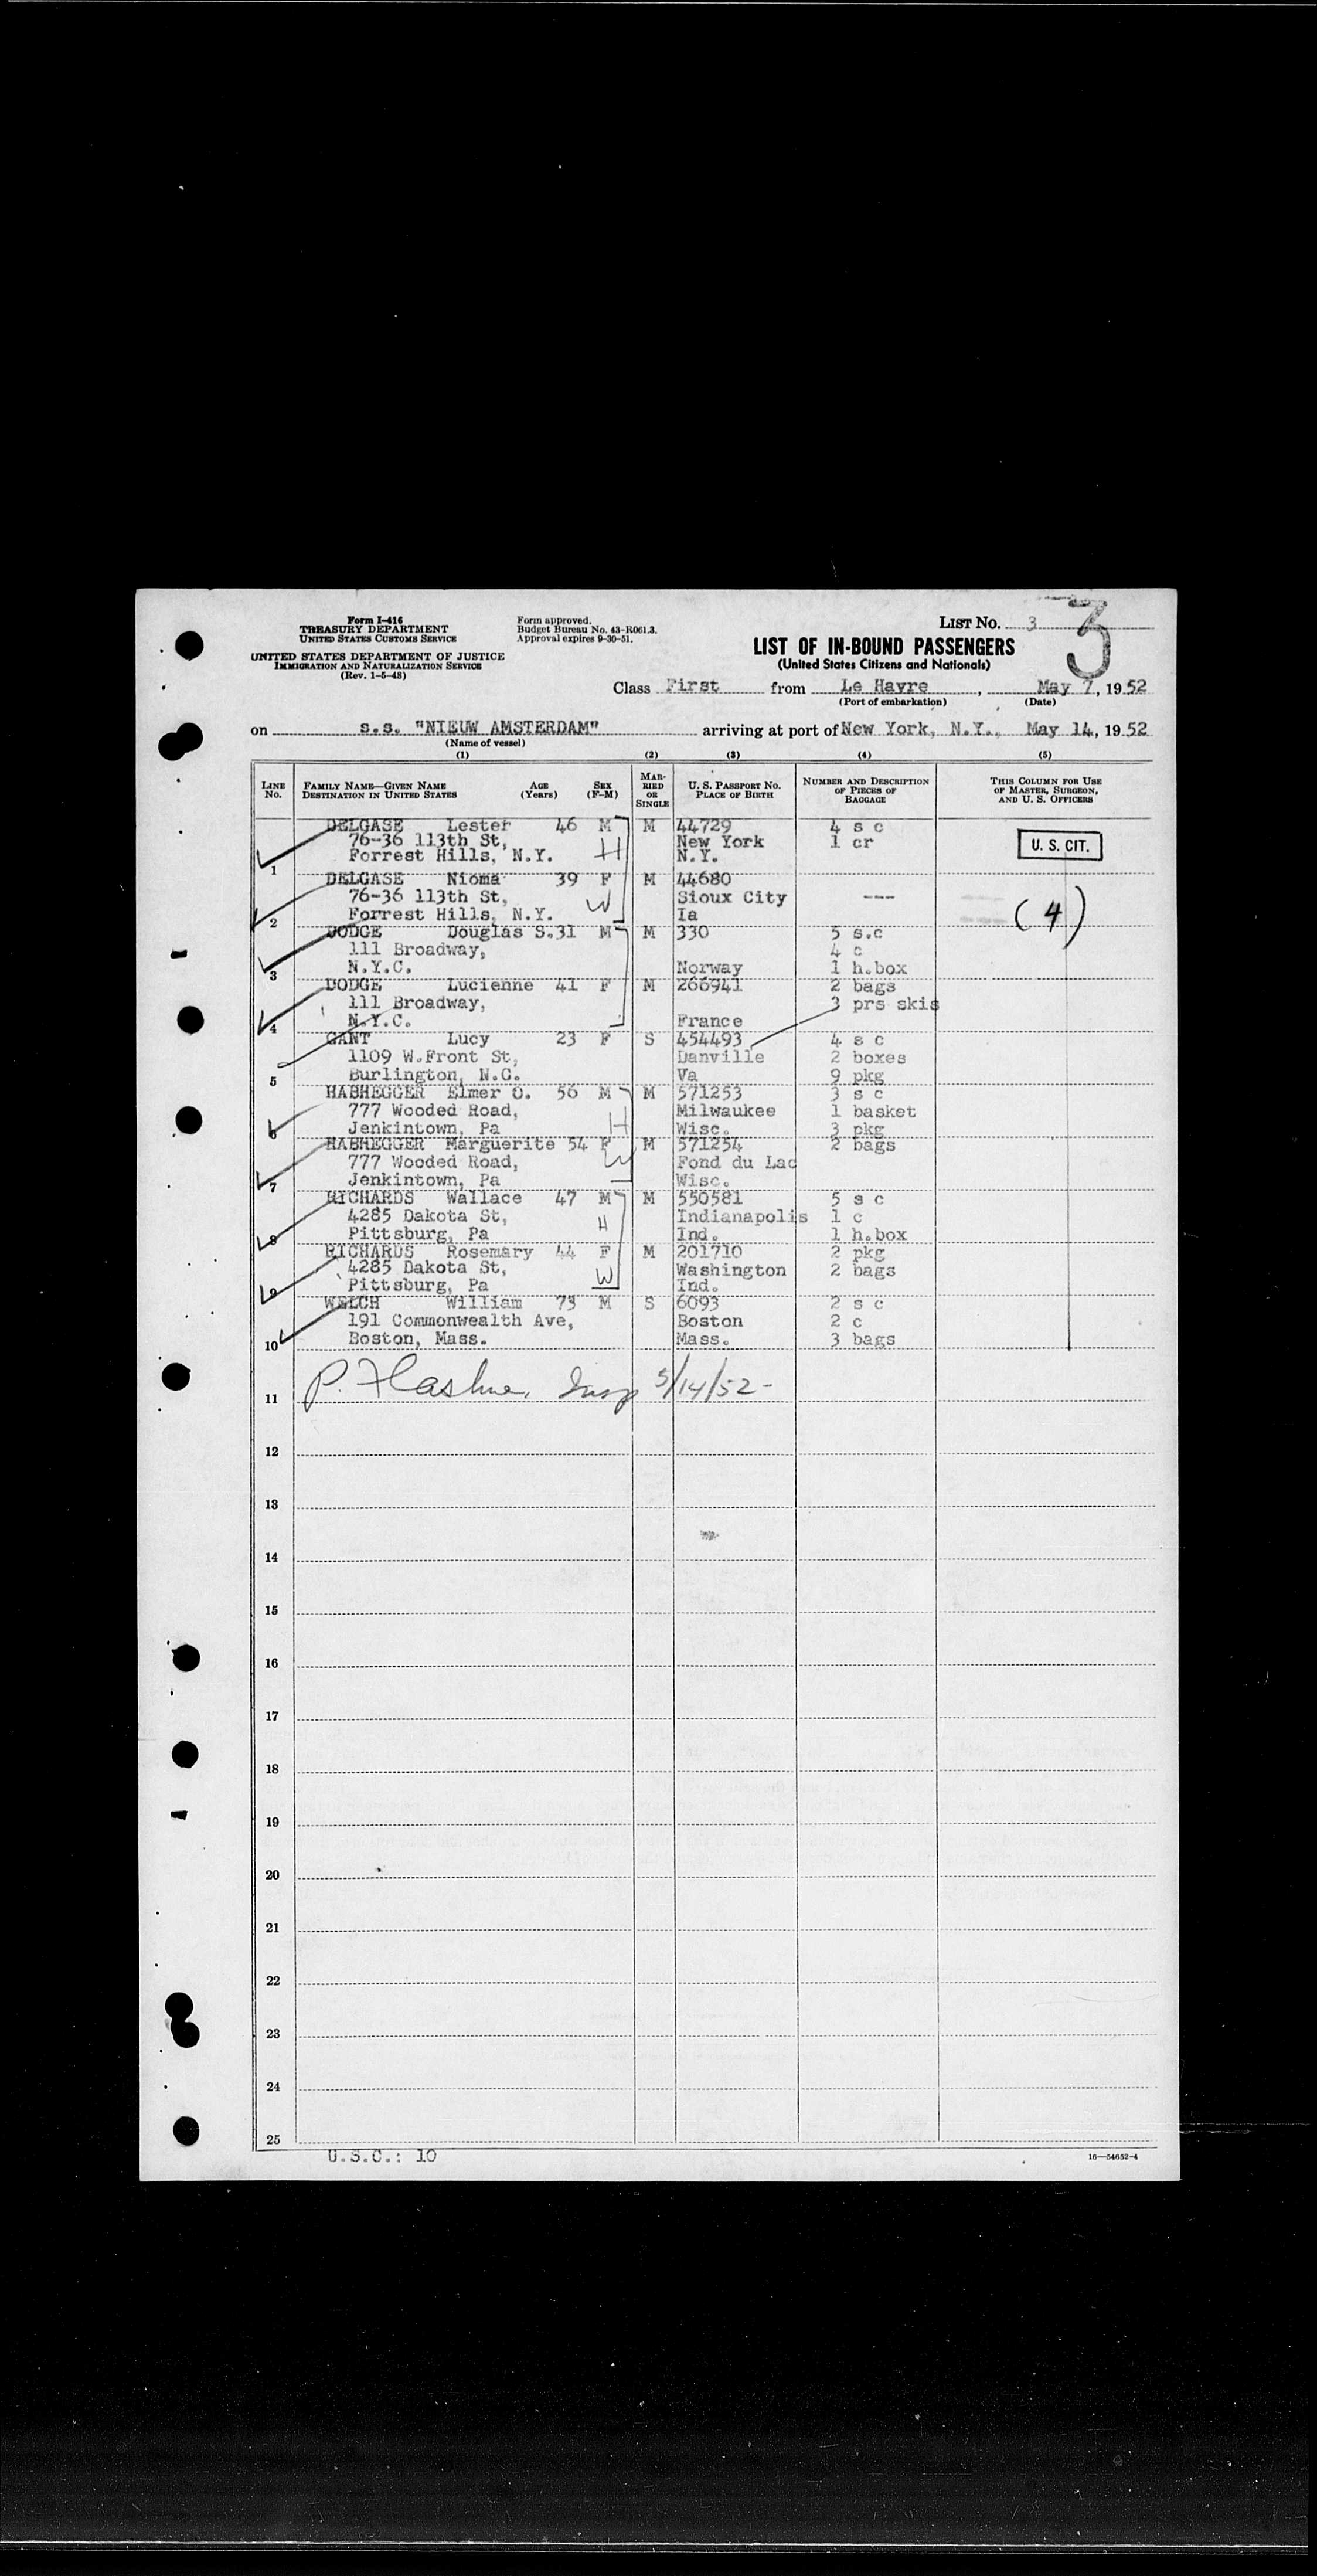 Form I-416
TREASURY DEPARTMENT
UNITED STATES CUSTOMS SERVICE
UNITED STATES DEPARTMENT OF JUSTICE
IMMIGRATION AND NATURALIZATION SERVICE
(Rev. 1-5-48)
Form approved.
Budget Bureau No. 43-R061.3.
Approval expires 9-30-51.
LIST No. 3
3
LIST OF IN-BOUND PASSENGERS
(United States Citizens and Nationals)
Class First from Le Havre, May 7, 1952
(Port of embarkation) (Date)
on s.s. "NIEUW AMSTERDAM" arriving at port of New York, N.Y., May 14, 1952
(Name of vessel)
(1) (2) (3) (4) (5)
LINE No. FAMILY NAME—GIVEN NAME DESTINATION IN UNITED STATES AGE (Years) SEX (F-M) MARRIED OR SINGLE U. S. PASSPORT No. PLACE OF BIRTH NUMBER AND DESCRIPTION OF PIECES OF BAGGAGE THIS COLUMN FOR USE OF MASTER, SURGEON, AND U. S. OFFICERS
DELGASE Lester 46 M M 44729 4 s c
76-36 113th St, New York 1 cr U. S. CIT.
1 Forrest Hills, N.Y. H N.Y.
DELGASE Nioma 39 F M 44680
76-36 113th St, W Sioux City ---
2 Forrest Hills, N.Y. Ia (4)
DODGE Douglas S. 31 M M 330 5 s.c
111 Broadway, 4 c
3 N.Y.C. Norway 1 h.box
DODGE Lucienne 41 F M 266941 2 bags
111 Broadway, 3 prs skis
4 N.Y.C. France
GANT Lucy 23 F S 454493 4 s c
1109 W.Front St, Danville 2 boxes
5 Burlington, N.C. Va 9 pkg
HABHEGGER Elmer O. 56 M M 571253 3 s c
777 Wooded Road, Milwaukee 1 basket
6 Jenkintown, Pa H Wisc. 3 pkg
HABHEGGER Marguerite 54 F M 571254 2 bags
777 Wooded Road, W Fond du Lac
7 Jenkintown, Pa Wisc.
RICHARDS Wallace 47 M M 550581 5 s c
4285 Dakota St, H Indianapolis 1 c
8 Pittsburg, Pa Ind. 1 h.box
RICHARDS Rosemary 44 F M 201710 2 pkg
4285 Dakota St, W Washington 2 bags
9 Pittsburg, Pa Ind.
WELCH William 73 M S 6093 2 s c
191 Commonwealth Ave, Boston 2 c
10 Boston, Mass. Mass. 3 bags
11 P. 5/14/52-
12
13
14
15
16
17
18
19
20
21
22
23
24
25
U.S.C.: 10
16—54652-4